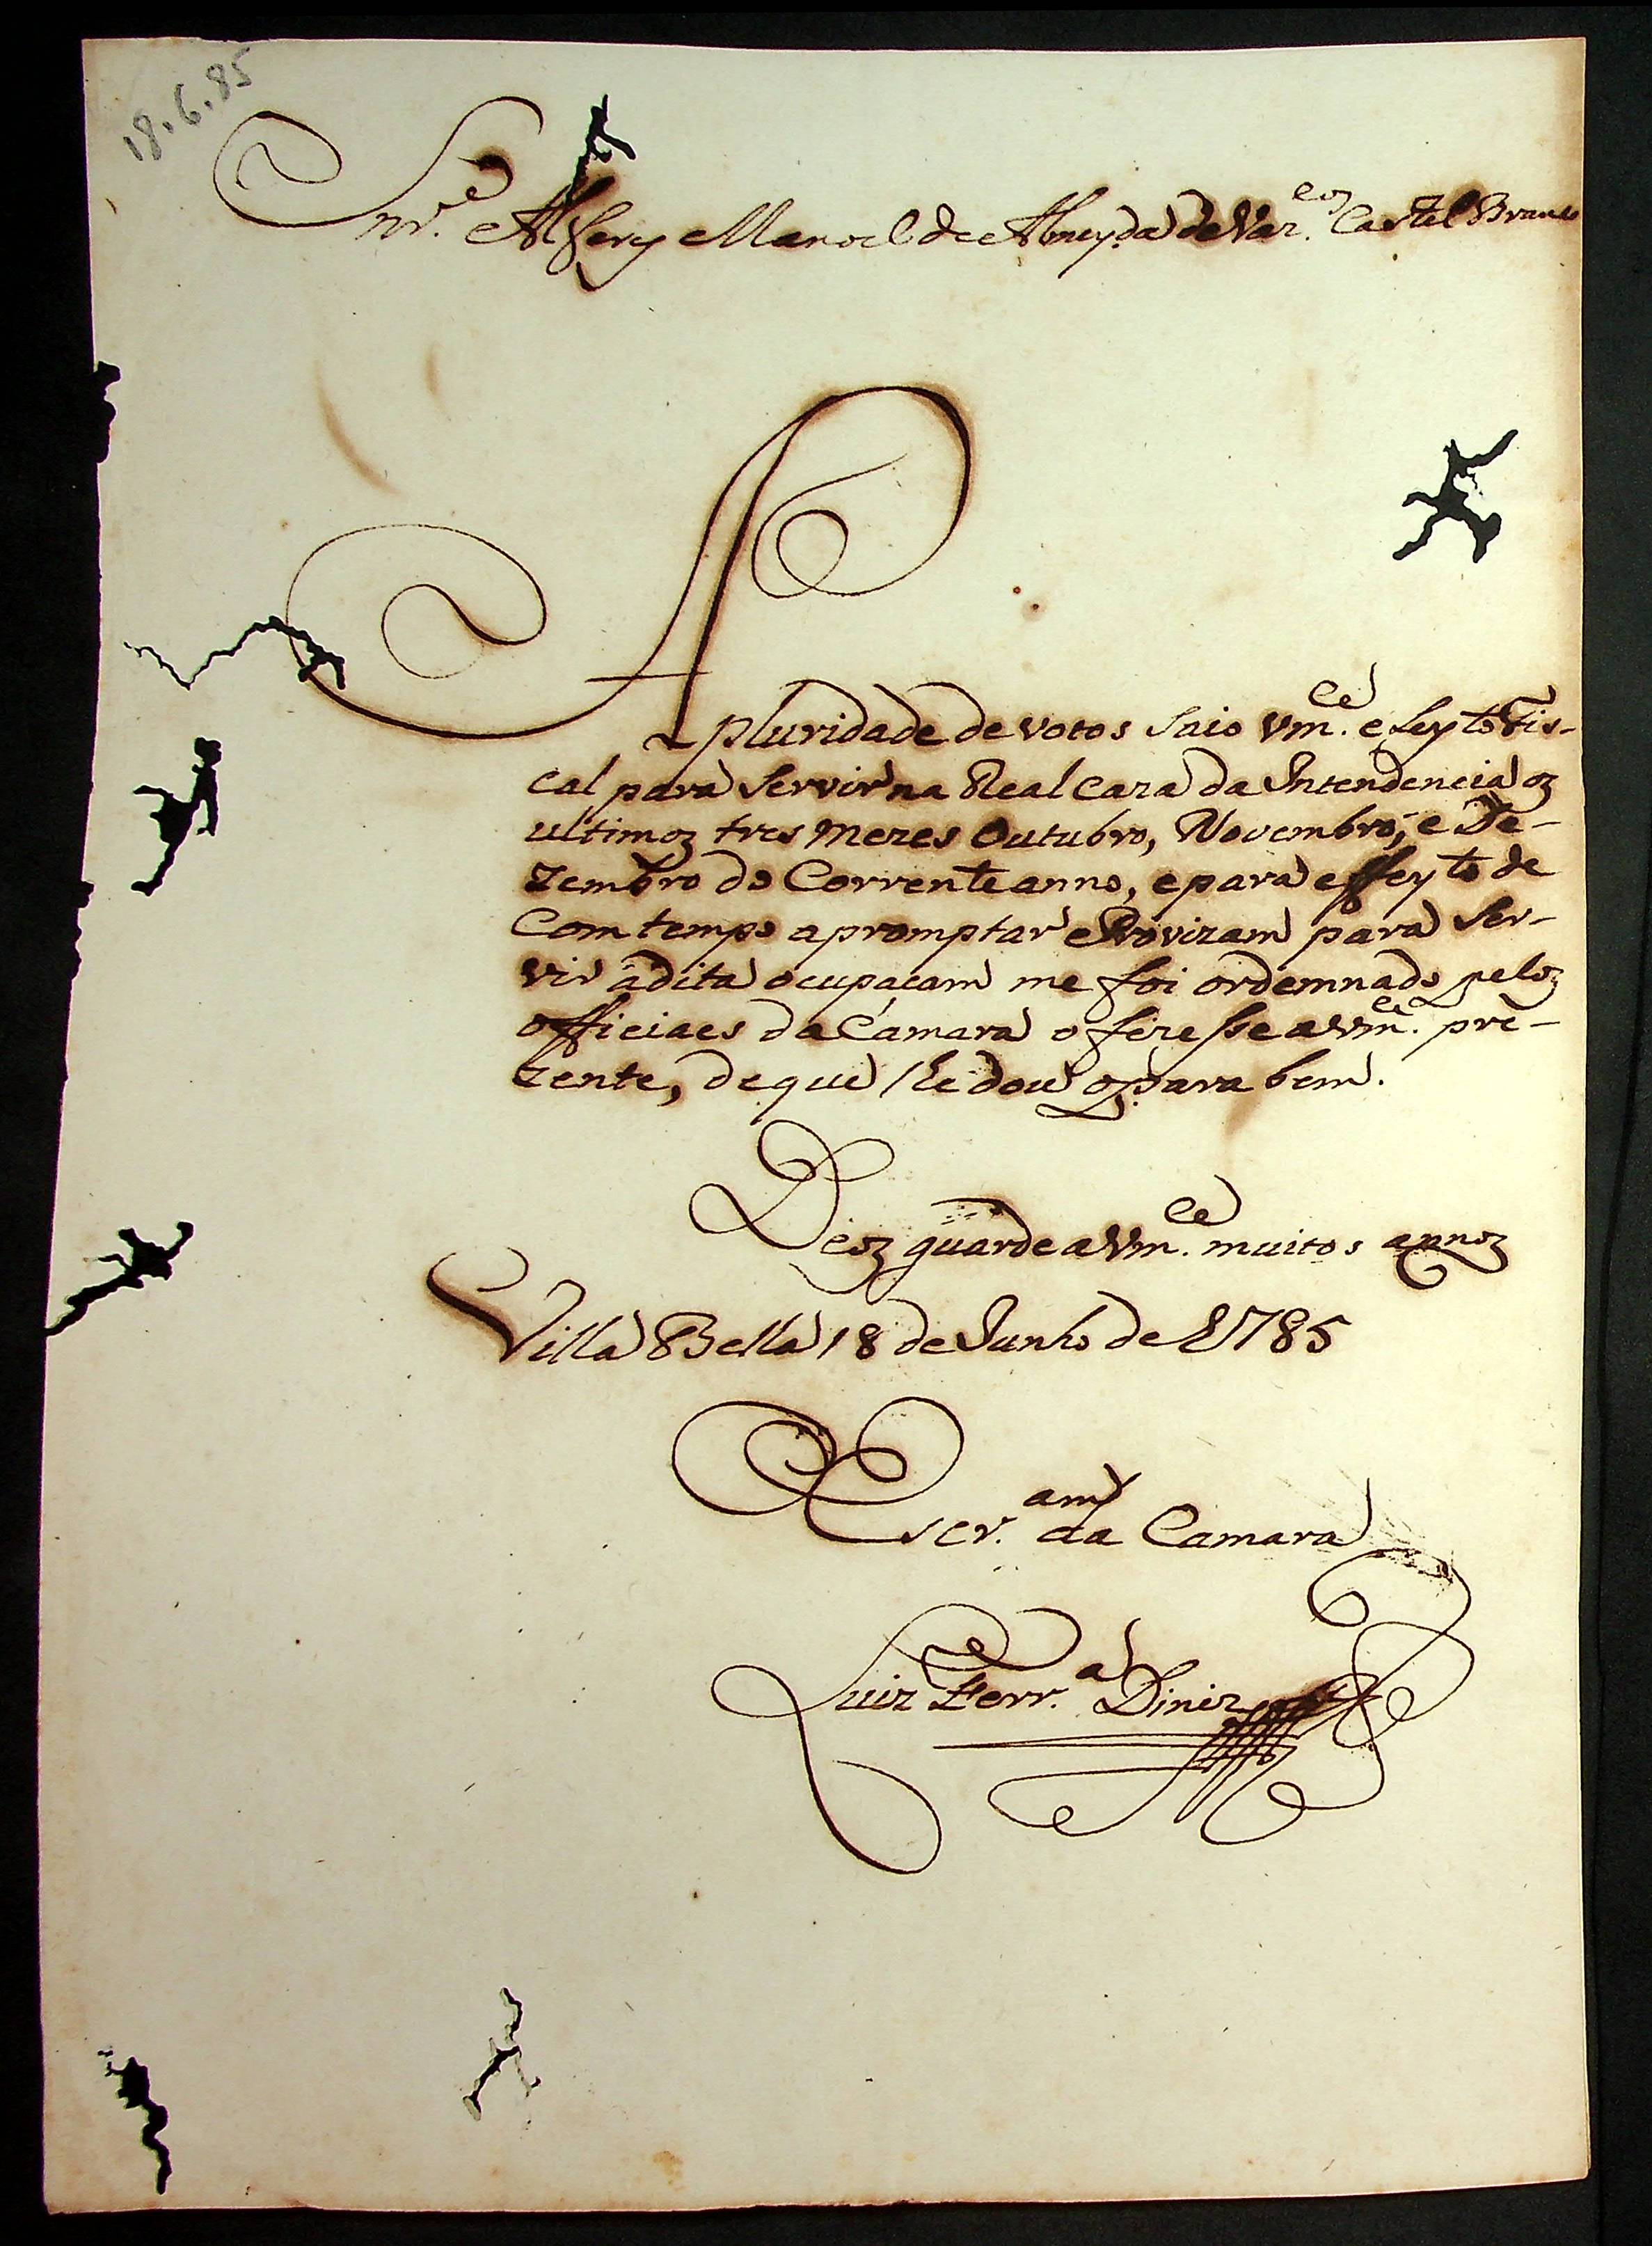 18.6.85
Snr.e Alferes Manoel de Almeyda de Vas.cos Castel Branco
A pluridade de votos Saio Vm.ce eLeyto Fis-
cal para Servir na Real Caza da Intendencia os
ultimos tres mezes Outubro, Novembro, e De-
zembro do Corrente anno, e para effeyto de
Com tempo apromptar Provizam para Ser-
vir adita ocupaçam me foi ordemnado pelos
officiaes da Camara o fizesse a Vm.ce pre-
zente, de que lhe dou o parabem.
Deos guarde a Vm.ce muitos annos
Villa Bella 18 de Junho de 1785
Escr.am da Camara
Luiz Ferr.a Diniz